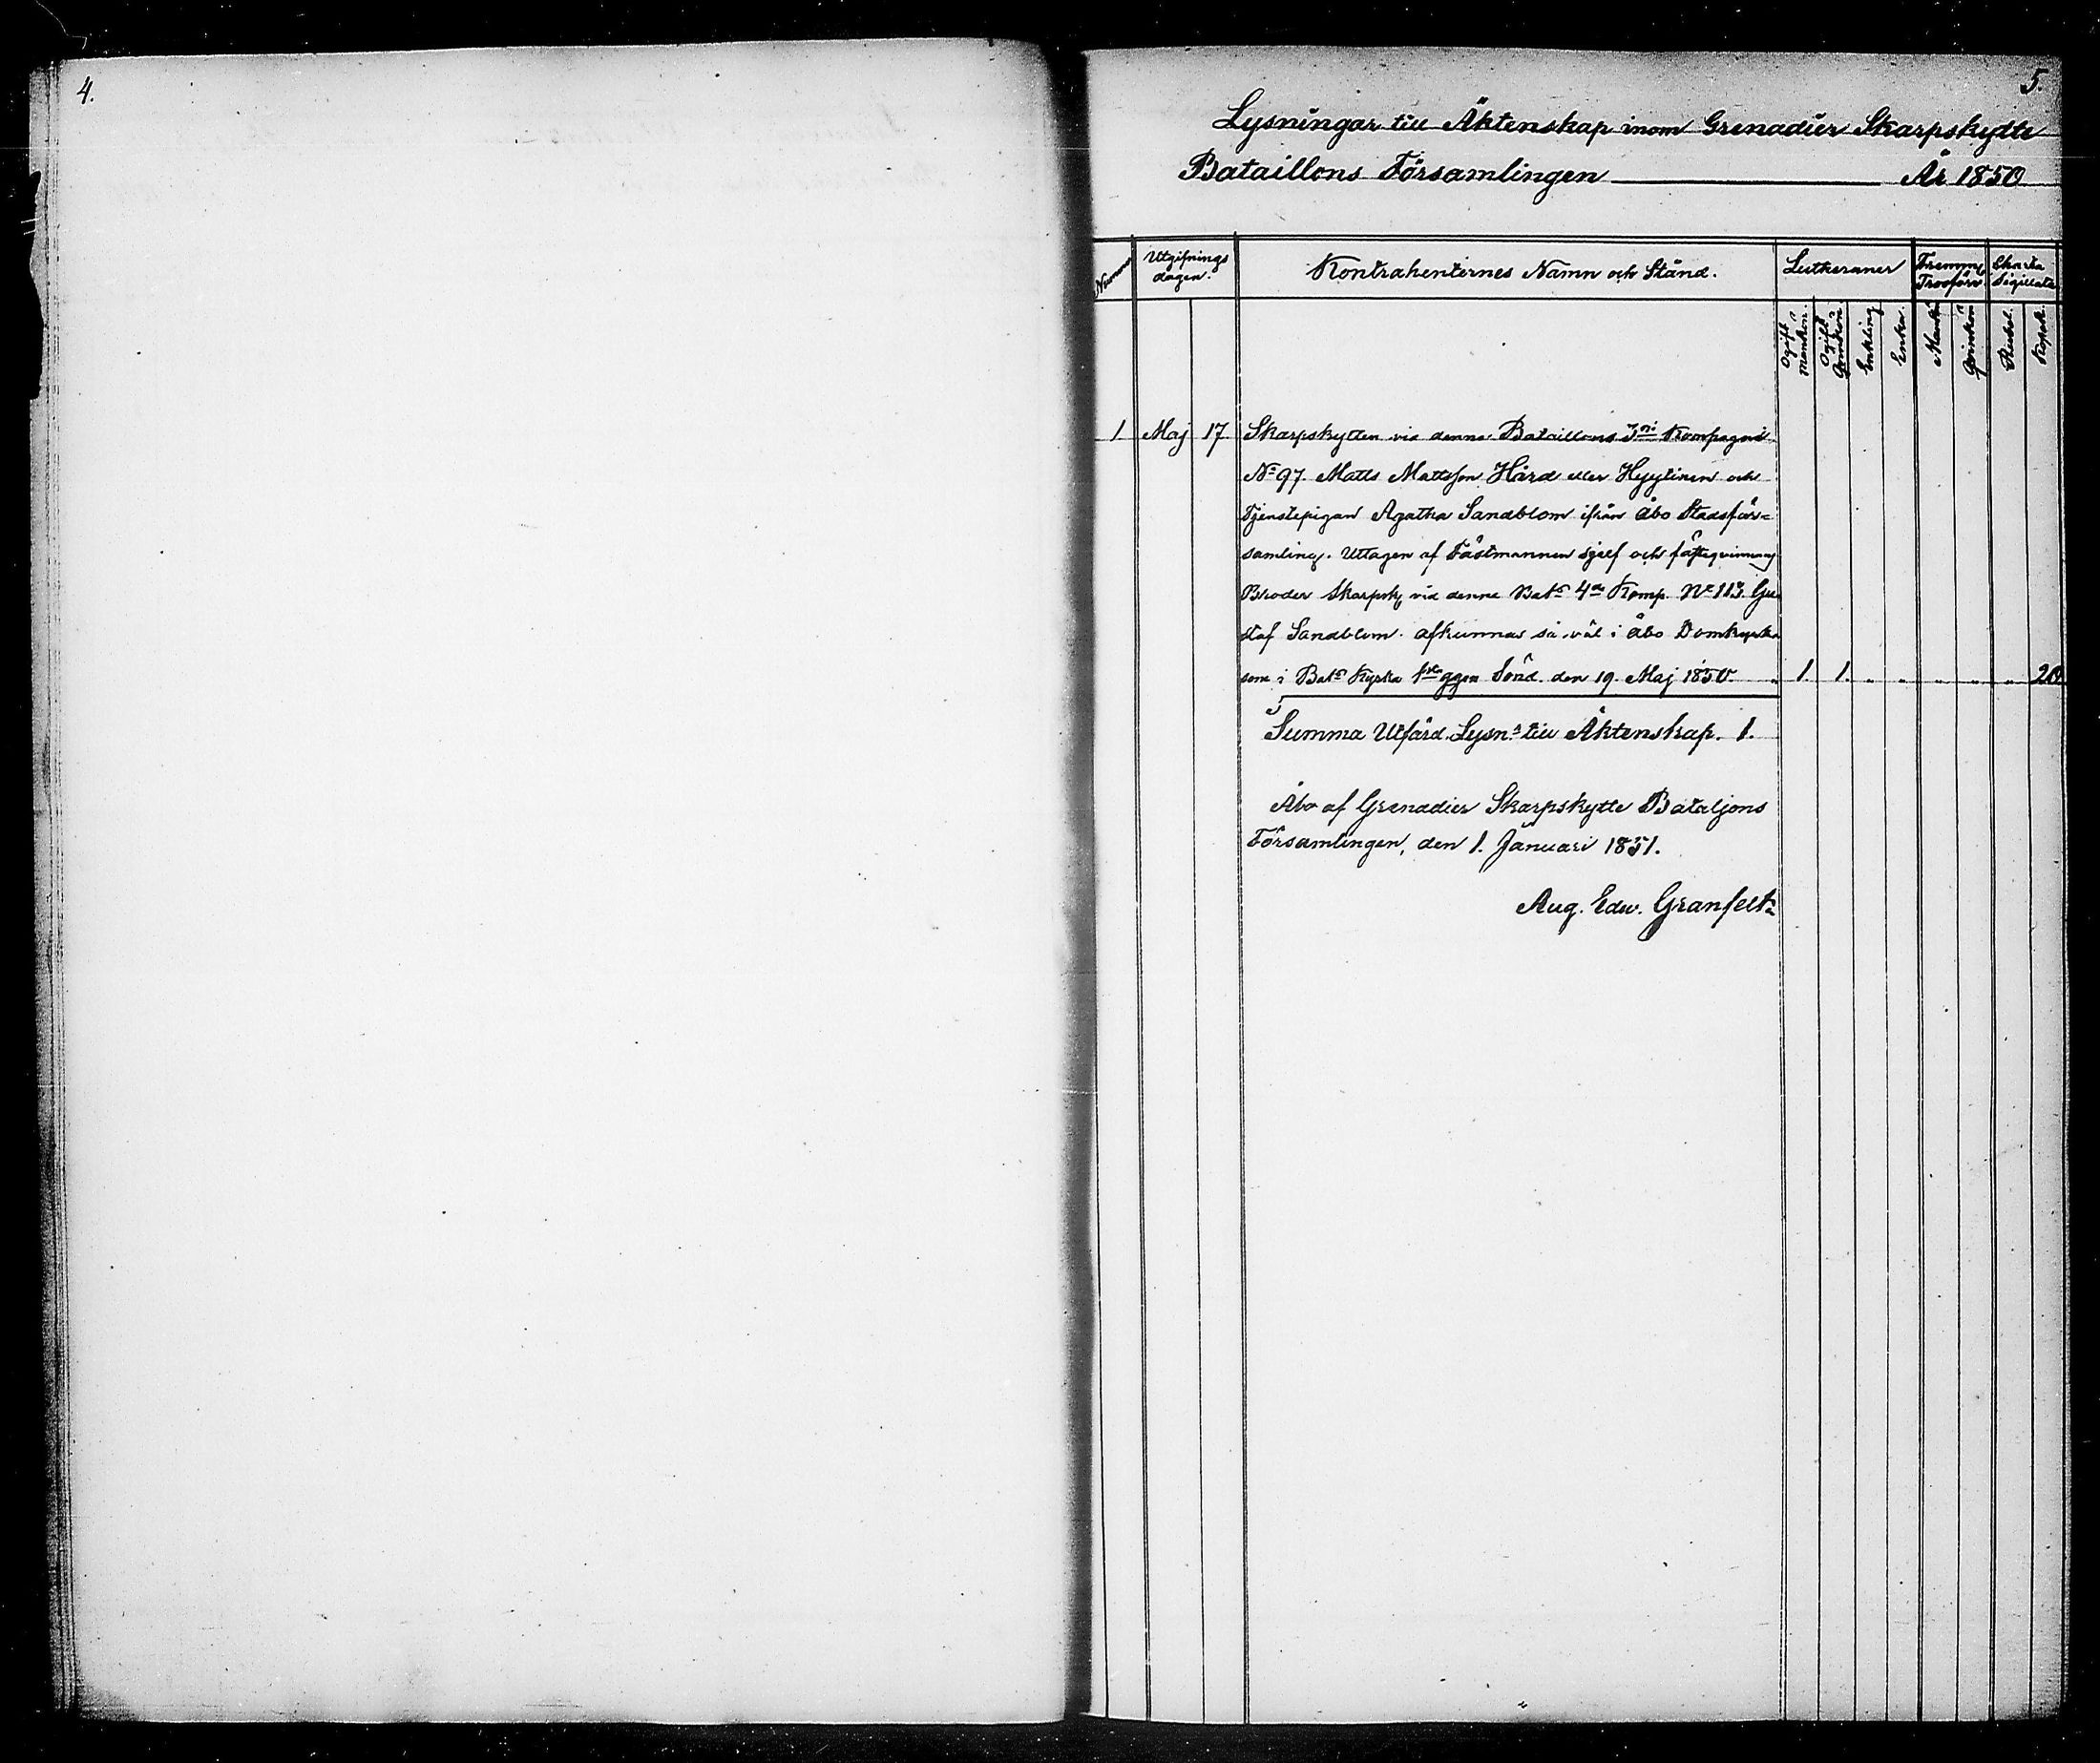 4.
5.
Lysningar till Äktenskap inom Grenadier Skarpskytte
Bataillons Församlingen År 1850
Nummer
Utgifnings
dagen.
Kontrahenternes Namn och Stånd.
Lutheraner
Fremm.
Trosförv.
Charta
Sigillata
Ogift
Mankön.
Ogift
Qvinkön
Enkling
Enka.
Mankön
Qvinkön
Rubel.
Kopek.
1 Maj 17. Skarpskytten vid denna Bataillons 3ni Kompagni
No 97. Matts Mattsson Hård eller Hyytinen och
Tjenstepigan Agatha Sandblom ifrån Åbo Stadsför=
samling. Uttagen af Fästmannen sjelf och fästeqvinnans
Broder Skarpsk. vid denne Bats 4de Komp. No 113. Gu
staf Sandblom. afkunnas så väl i Åbo Domkyrka
som i Bats Kyrka 1sta ggen Sönd. den 19. Maj 1850. 1. 1. " " " " " 20.
Summa Utfärd. Lysn.r till Äktenskap. 1.
Åbo af Grenadier Skarpskytte Bataljons
Församlingen, den 1. Januari 1851.
Aug. Edw. Granfelt